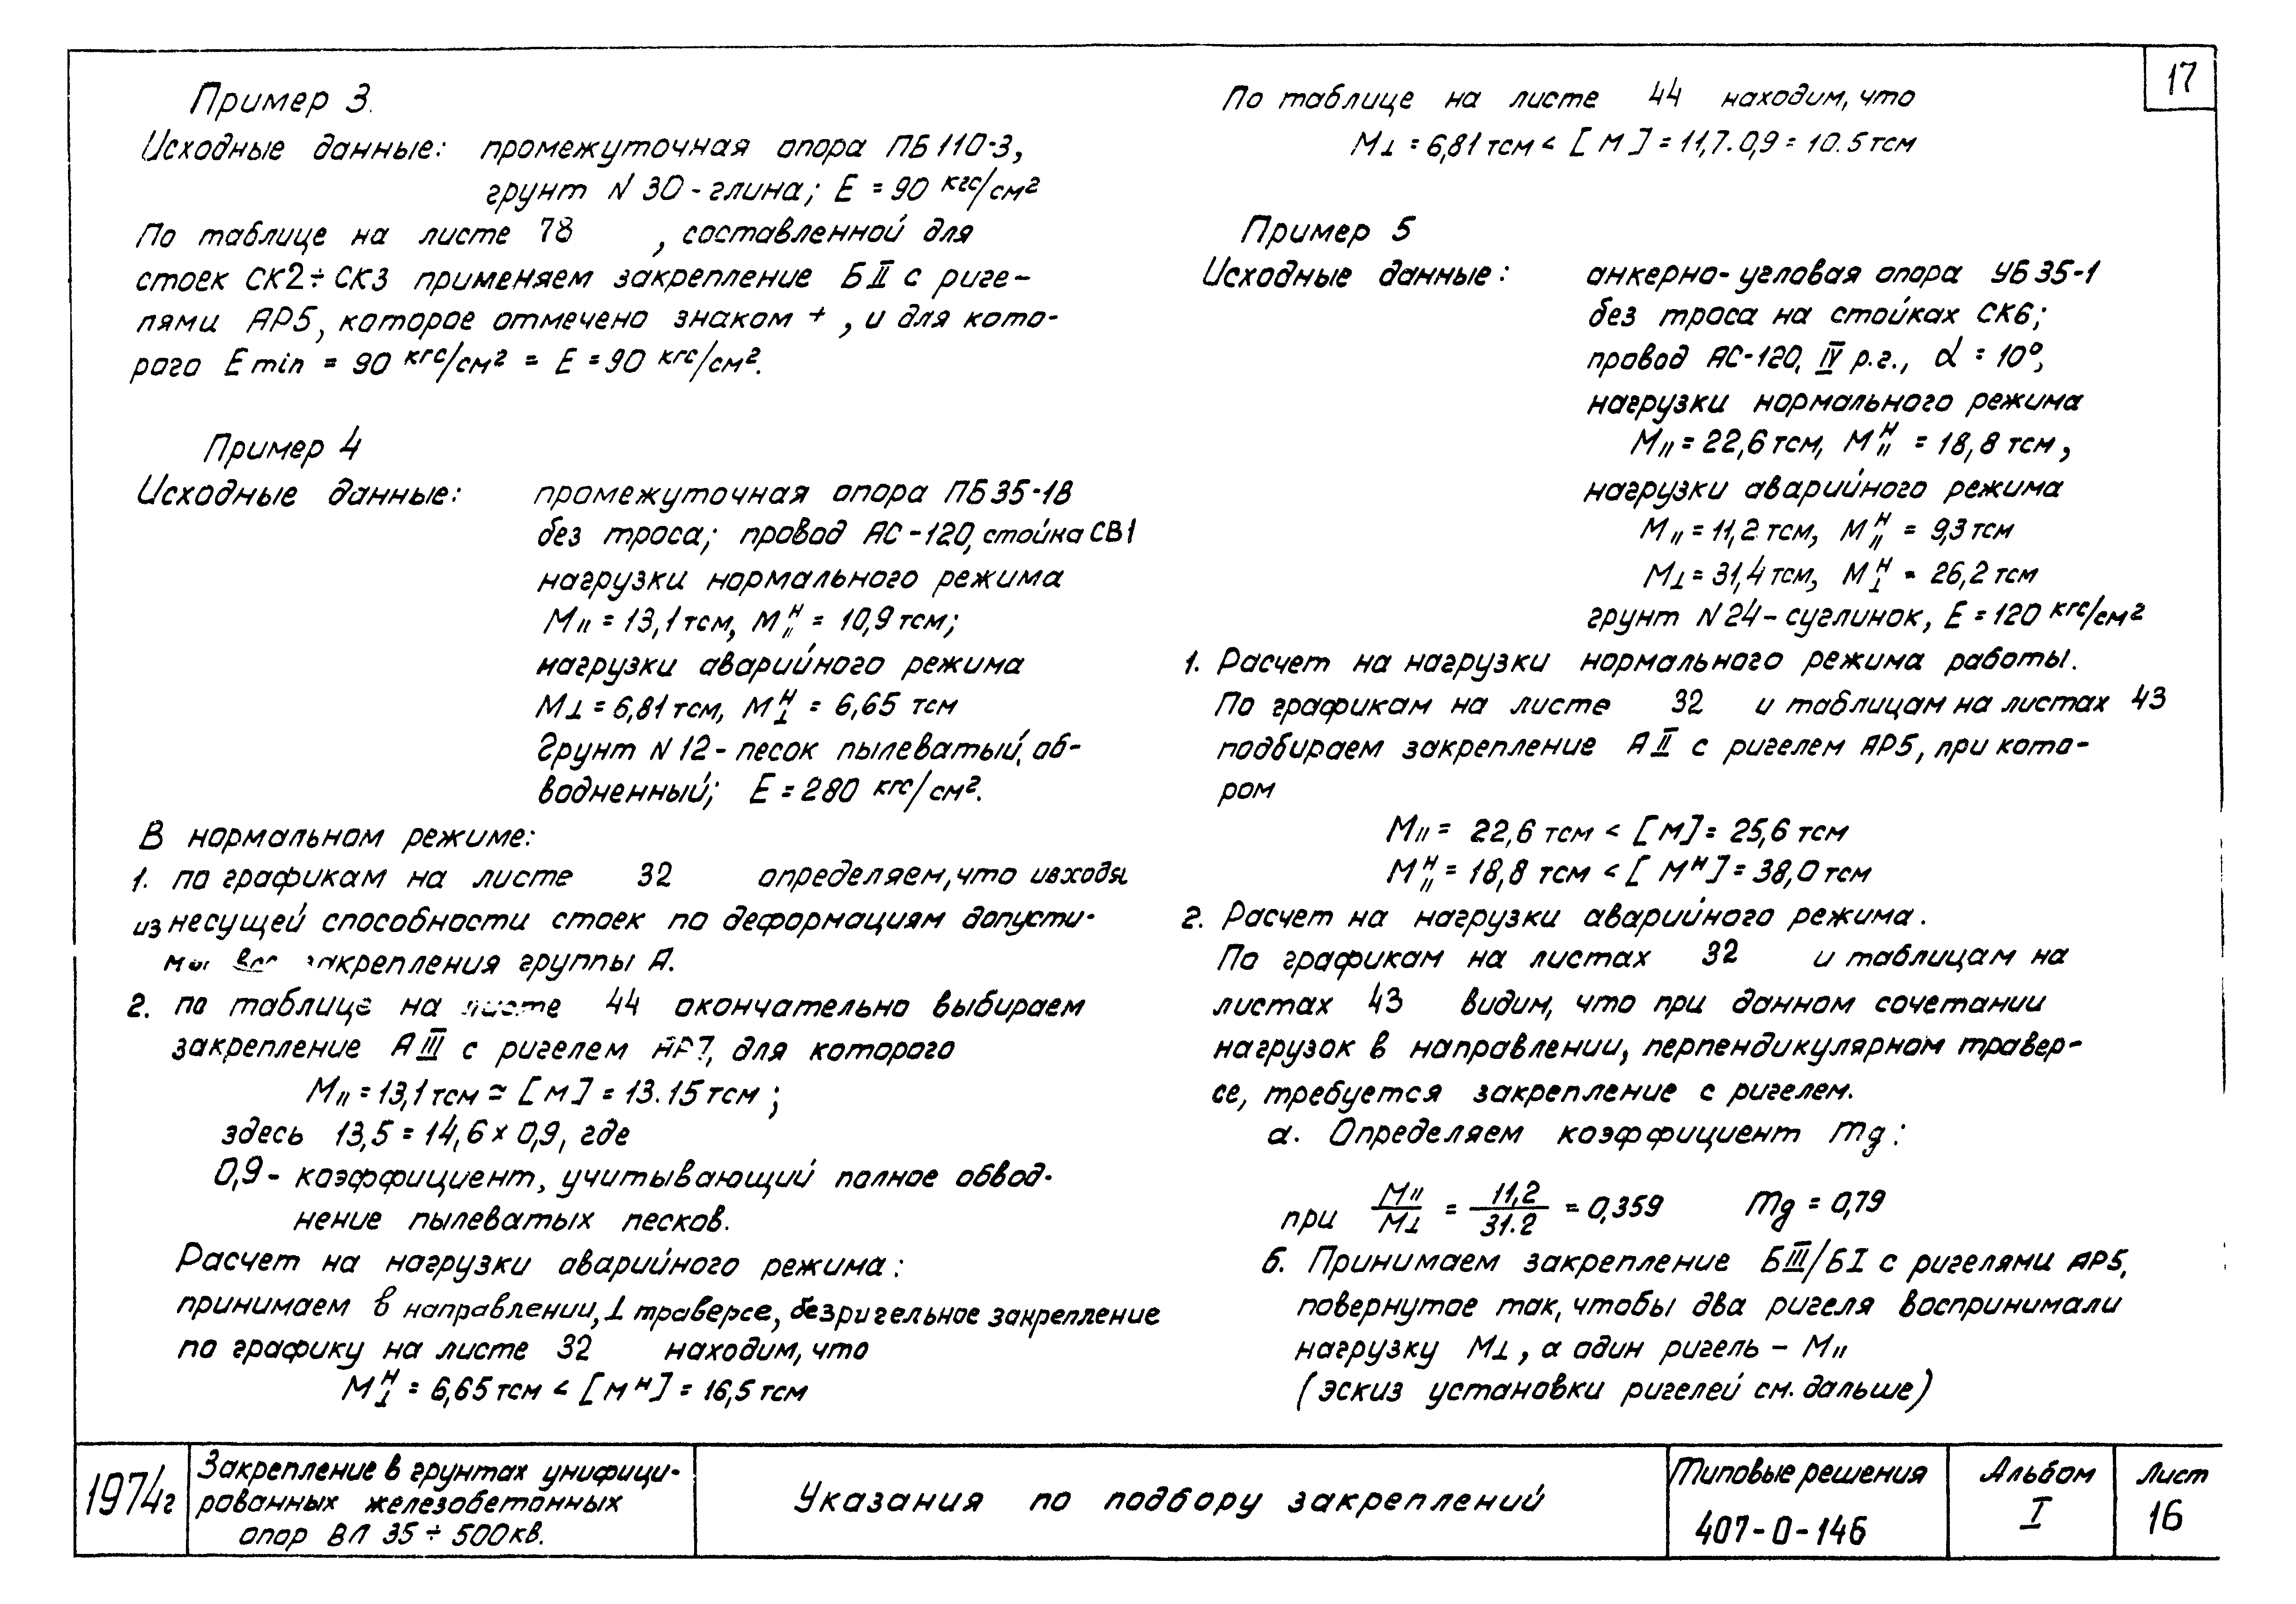 17
Пример 3.
Исходные данные: промежуточная опора ПБ 110-3,
грунт N 30 - глина; E = 90 кгс/см²
По таблице на листе 78 , составленной для
стоек СК2 ÷ СК3 применяем закрепление Б II с риге-
лями АР5, которое отмечено знаком + , и для кото-
рого E min = 90 кгс/см² = E = 90 кгс/см².
Пример 4
Исходные данные: промежуточная опора ПБ 35-1В
без троса; провод АС-120, стойка СВ1
нагрузки нормального режима
M॥ = 13,1 тсм, M॥ᴴ = 10,9 тсм;
нагрузки аварийного режима
M⊥ = 6,81 тсм, M⊥ᴴ = 6,65 тсм
Грунт N 12 - песок пылеватый, об-
водненный; E = 280 кгс/см².
В нормальном режиме:
1. по графикам на листе 32 определяем, что исходя
из несущей способности стоек по деформациям допусти-
мы все закрепления группы А.
2. по таблице на листе 44 окончательно выбираем
закрепление А III с ригелем АР7, для которого
M॥ = 13,1 тсм ≃ [M] = 13.15 тсм ;
здесь 13,5 = 14,6 × 0,9, где
0,9 - коэффициент, учитывающий полное обвод-
нение пылеватых песков.
Расчет на нагрузки аварийного режима:
принимаем в направлении, ⊥ траверсе, безригельное закрепление
по графику на листе 32 находим, что
M⊥ᴴ = 6,65 тсм < [Mᴴ] = 16,5 тсм
По таблице на листе 44 находим, что
M⊥ = 6,81 тсм < [M] = 11,7 . 0,9 = 10.5 тсм
Пример 5
Исходные данные: анкерно-угловая опора УБ 35-1
без троса на стойках СК6;
провод АС-120, IV р.г., α = 10°,
нагрузки нормального режима
M॥ = 22,6 тсм, M॥ᴴ = 18,8 тсм,
нагрузки аварийного режима
M॥ = 11,2 тсм, M॥ᴴ = 9,3 тсм
M⊥ = 31,4 тсм, M⊥ᴴ = 26,2 тсм
грунт N 24 - суглинок, E = 120 кгс/см²
1. Расчет на нагрузки нормального режима работы.
По графикам на листе 32 и таблицам на листах 43
подбираем закрепление А II с ригелем АР5, при кото-
ром
M॥ = 22,6 тсм < [M] = 25,6 тсм
M॥ᴴ = 18,8 тсм < [Mᴴ] = 38,0 тсм
2. Расчет на нагрузки аварийного режима.
По графикам на листах 32 и таблицам на
листах 43 видим, что при данном сочетании
нагрузок в направлении, перпендикулярном травер-
се, требуется закрепление с ригелем.
а. Определяем коэффициент mg:
при M॥/M⊥ = 11,2/31.2 = 0,359 mg = 0,79
б. Принимаем закрепление Б III / Б I с ригелями АР5,
повернутое так, чтобы два ригеля воспринимали
нагрузку M⊥, а один ригель - M॥
(эскиз установки ригелей см. дальше)
1974г
Закрепление в грунтах унифици-
рованных железобетонных
опор ВЛ 35 ÷ 500 кв.
Указания по подбору закреплений
Типовые решения
407-0-146
Альбом
I
Лист
16